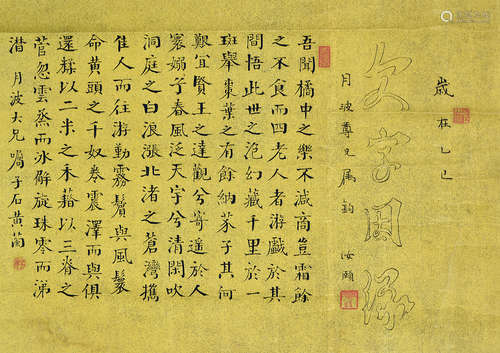 歲在乙巳
文字因緣
月波尊兄屬鈞 汝頤
吾聞橘中之樂不減商豈霜餘
之不食而四老人者游戲於其
間悟此世之泡幻藏千里於一
班舉棗葉之有餘納芥子其何
艱宜賢王之達觀兮寄遥於人
寰嫋子春風泛天宇兮清閑吹
洞庭之白浪漲北渚之蒼灣攜
佳人而往游勤霧鬢與風鬟
命黃頭之千奴卷震澤而與俱
還糅以二米之禾藉以三脊之
菅忽雲烝而冰解旋珠零而涕
潸 月波大兄囑子石黃